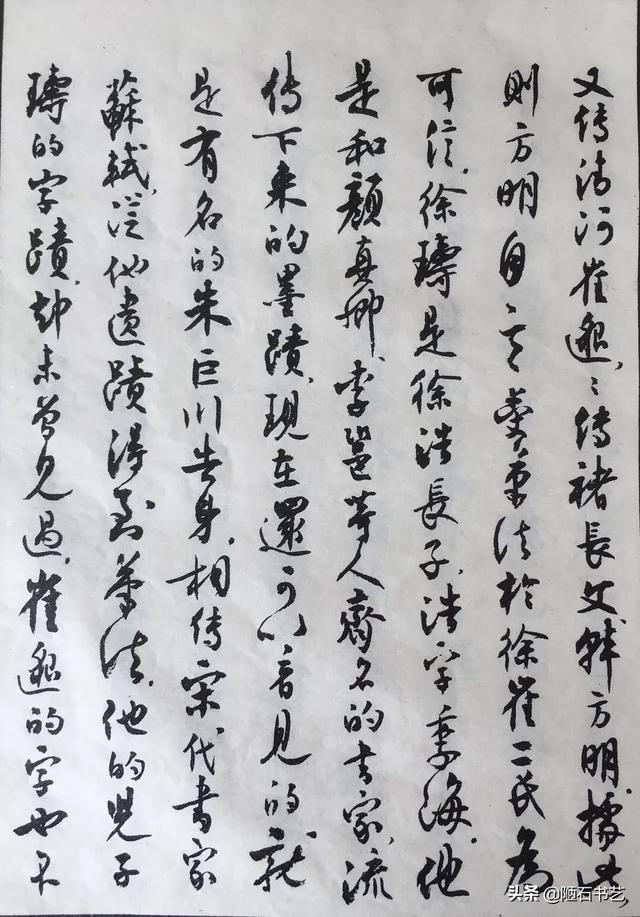 又传清河崔邈，〻传褚长文、韩方明。据此，
则方明自言受笔法於徐崔二氏为
可信。徐璹是徐浩長子，浩字季海，他
是和颜真卿、李邕等人齊名的書家，流
传下来的墨蹟，现在還可以看見的，就
是有名的朱巨川告身。相传宋代書家
蘇軾，從他遺蹟得到筆法。他的兒子
璹的字蹟，却未曾見過。崔邈的字也不
头条 @陋石书艺